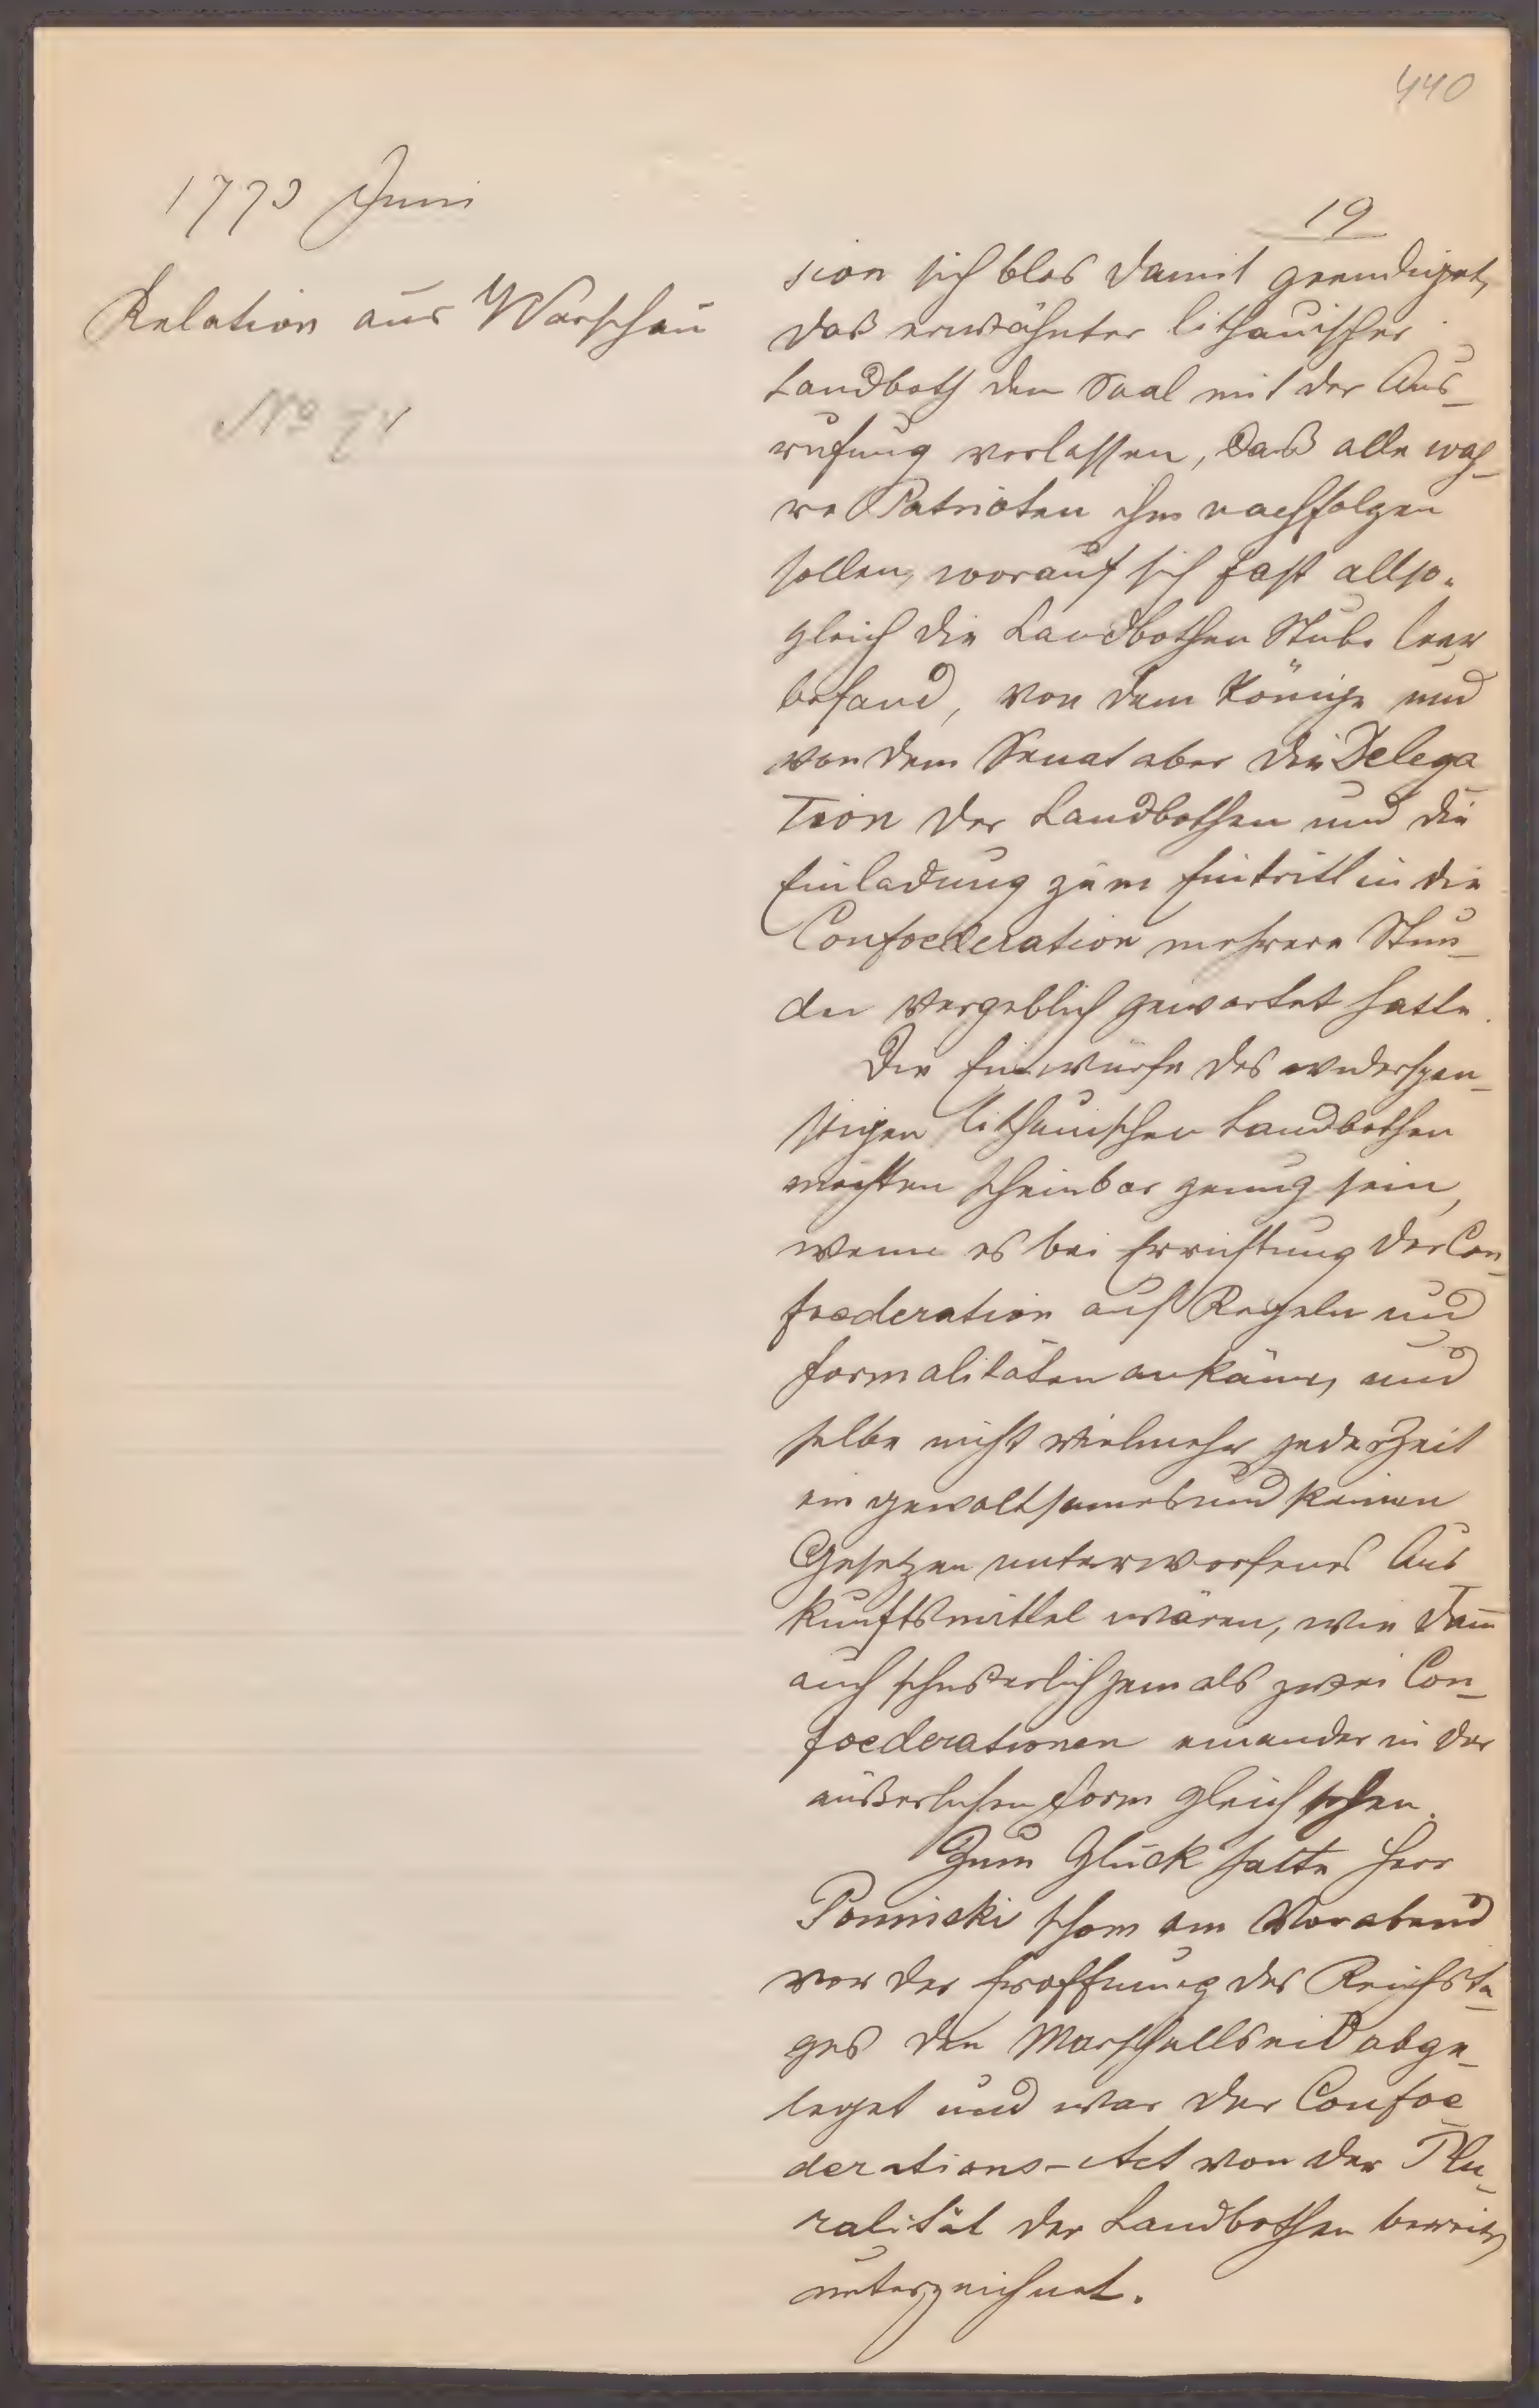 440
1773 Juni
19
Relation aus Warschau
No 71
sion sich blos damit geendiget,
daß erwähnter lithauischer
Landboth den Saal mit der Aus-
rufung verlassen, daß alle wah-
re Patrioten ihm nachfolgen
sollen, worauf sich fast allso-
gleich die Landbothen Stube leer
befand, von dem Könige und
von dem Senat aber die Delega
tion der Landbothen und die
Einladung zum Eintritt in die
Confoederation mehrere Stun-
den vergeblich gewartet hatte.
Die Einwürfe des widerspen-
stigen lithauischen Landbothen
möchten scheinbar genug sein,
wenn es bei Errichtung der Con-
foederation auf Regeln und
Formalitäten ankäme, und
selbe nicht vielmehr jederzeit
ein gewaltsames und keinen
Gesetzen unterworfenes Aus
kunftsmittel wären, wie dann
auch schwerlich jemals zwei Con-
foederationen einander in der
äußerlichen Form gleich sehen.
Zum Glück hatte Herr
Poninski schon am Vorabend
vor der Eröffnung des Reichsta-
ges den Marschallseid abge-
leget und war der Confoe
derations-Act von der Plu-
ralität der Landbothen bereits
unterzeichnet.